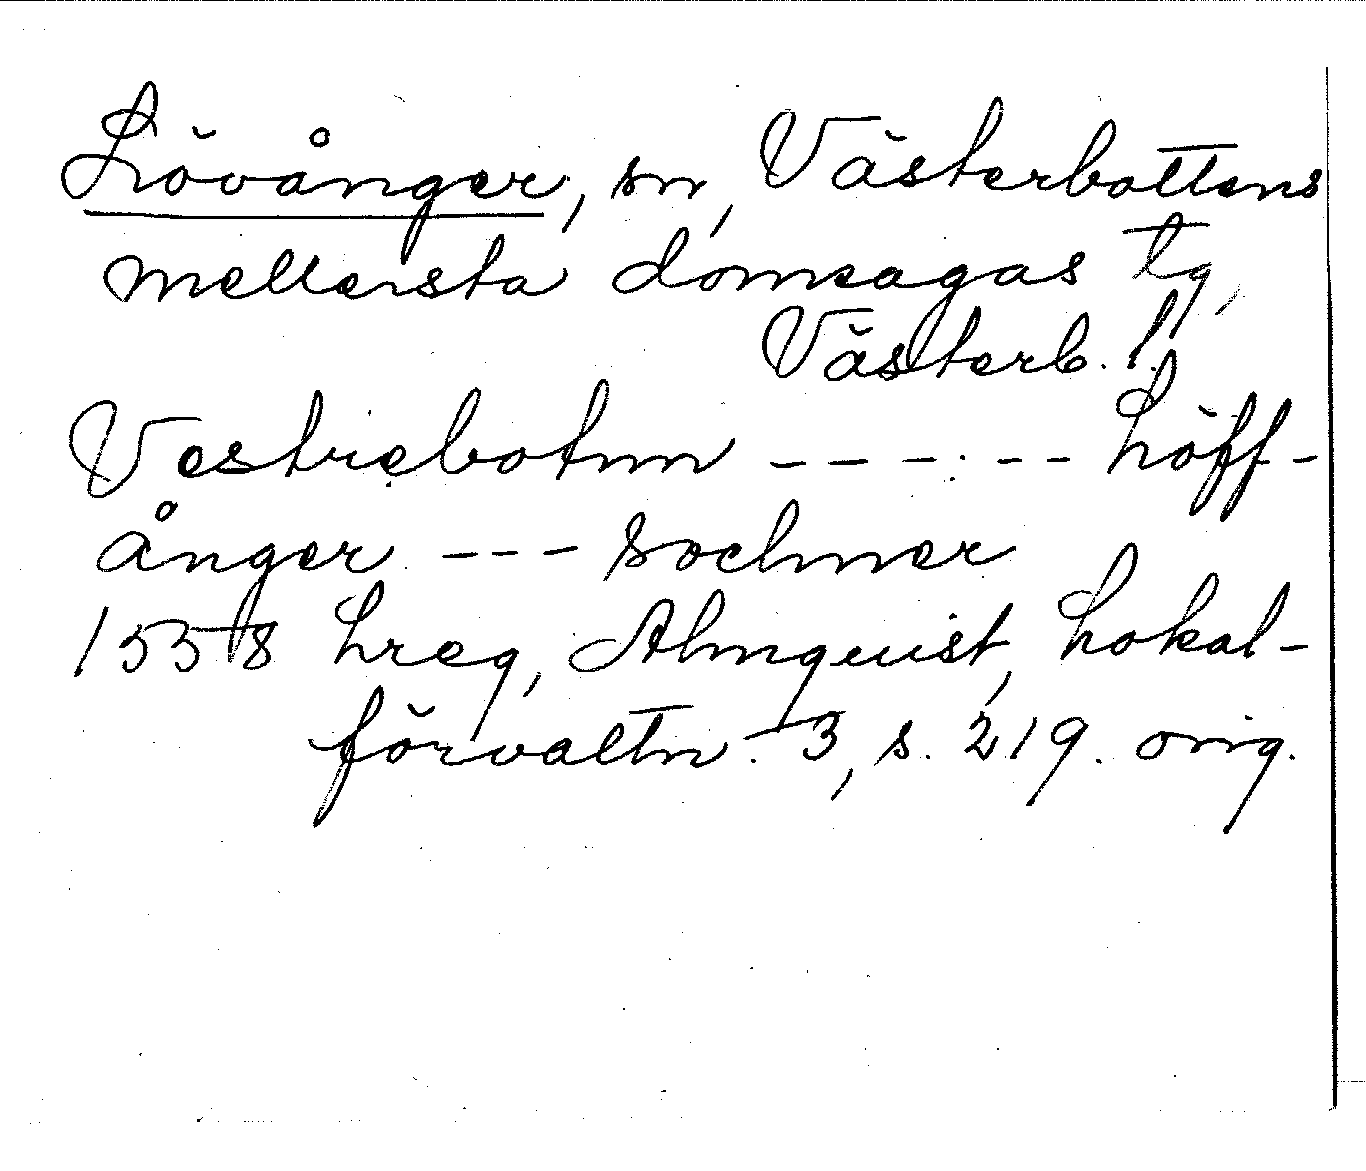 Lövånger, sn, Västerbottens
mellersta domsagas tg,
Västerb. l.
Vestrebotnn - - - - - - Löff-
ånger - - - sochner
1558 Lreg, Almquist, Lokal-
förvaltn. 3, s. 219. orig.